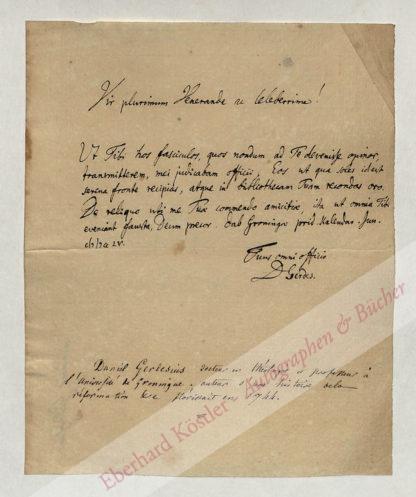 Vir plurimum Venerande ac Celeberrime!
Ut Tibi hos fasciculos, quos nondum ad Te devenisse opinor,
transmitterem, mei judicabam officii. Eos ut qua soles
serena fronte recipias, atque in bibliothecam Tuam recondas oro.
De reliquo uti me Tuae commendo amicitiae, ita ut omnia Tibi
eveniant fausta, Deum precor. Dab. Groningae prid. Kalendas. Jun.
Tuus omni officio
D Gerdes.
Daniel Gerdesius docteur en Théologie et professeur à
l'Université de Groningue, auteur de la
réformation &c florissait en 1744.
Eberhard Köstler - Autographen & Bücher